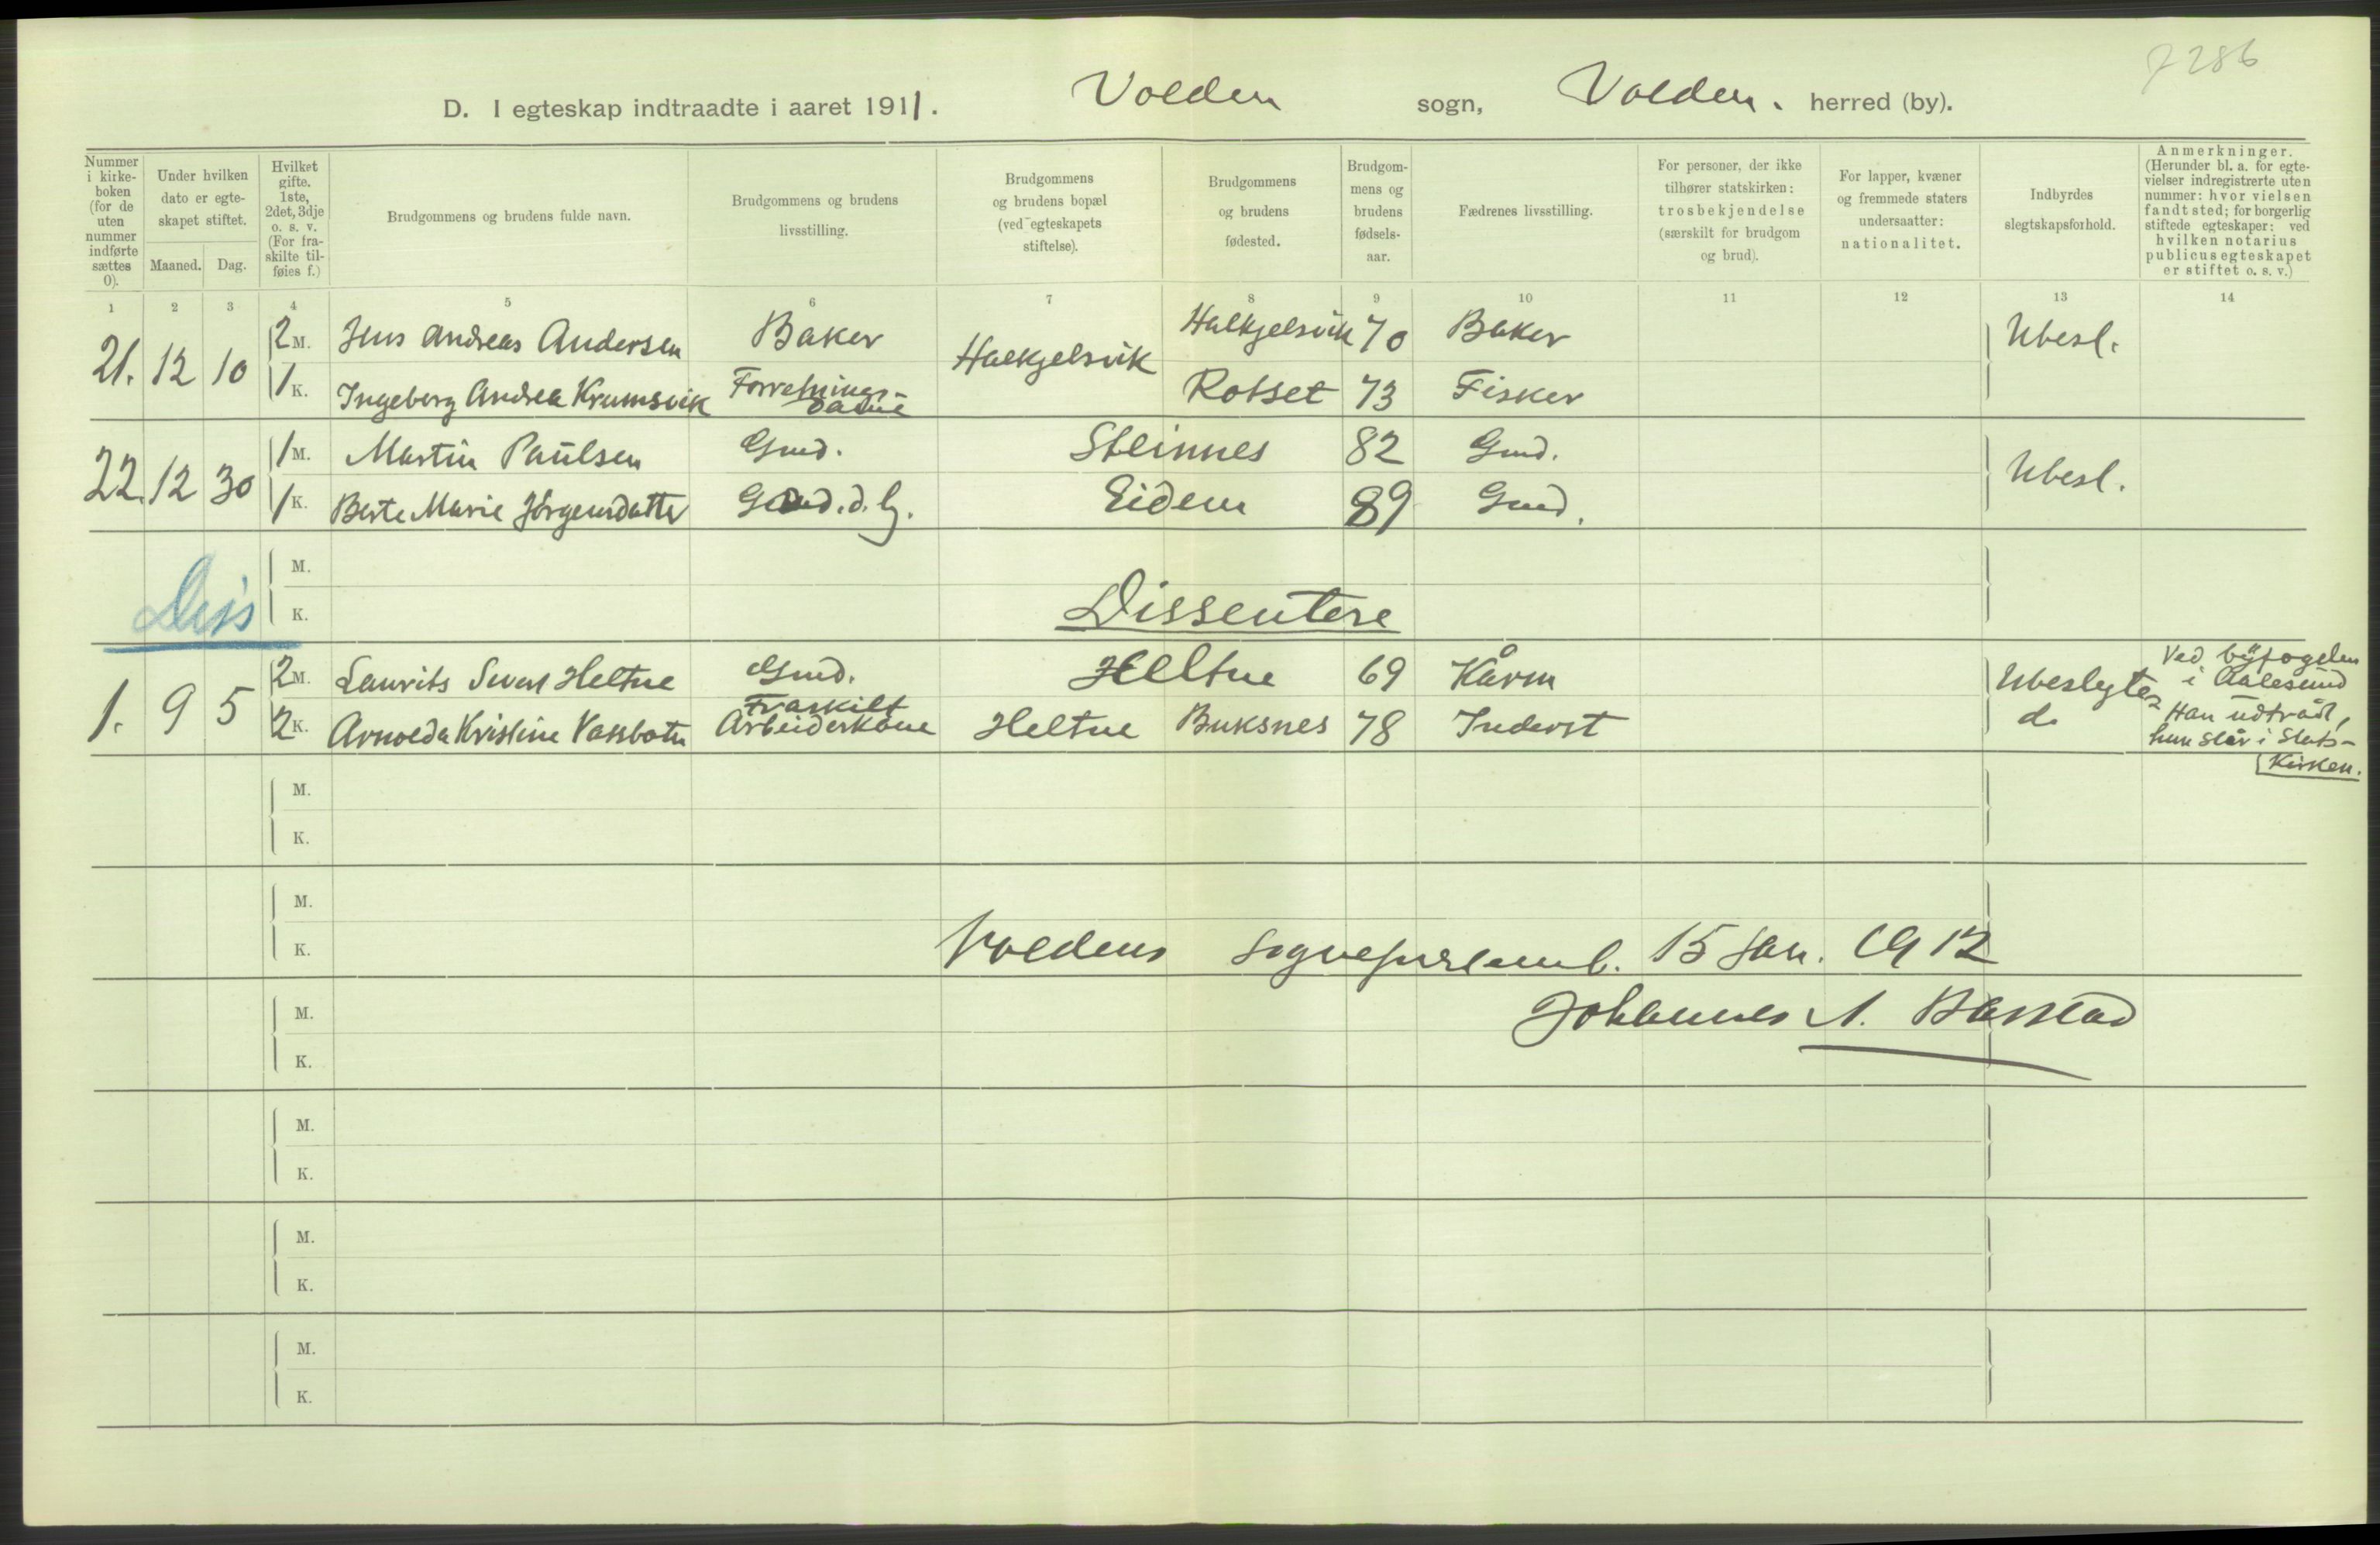 7286
D. I egteskap indtraadte i aaret 1911. Volden sogn, Volden. herred (by).
Nummer i kirkeboken (for de uten nummer indførte sættes 0).
Under hvilken dato er egteskapet stiftet.
Maaned. Dag.
Hvilket gifte. 1ste, 2det, 3dje o. s. v. (For fraskilte tilføies f.)
Brudgommens og brudens fulde navn.
Brudgommens og brudens livsstilling.
Brudgommens og brudens bopæl (ved egteskapets stiftelse).
Brudgommens og brudens fødested.
Brudgommens og brudens fødselsaar.
Fædrenes livsstilling.
For personer, der ikke tilhører statskirken: trosbekjendelse (særskilt for brudgom og brud).
For lapper, kvæner og fremmede staters undersaatter: nationalitet.
Indbyrdes slegtskapsforhold.
Anmerkninger. (Herunder bl. a. for egtevielser indregistrerte uten nummer: hvor vielsen fandt sted; for borgerlig stiftede egteskaper: ved hvilken notarius publicus egteskapet er stiftet o. s. v.)
1 2 3 4 5 6 7 8 9 10 11 12 13 14
21. 12 10 2 M. Jens Andreas Andersen Baker Halkjelsvik Halkjelsvik 70 Baker Ubesl.
1 K. Ingeborg Andrea Krumsvik Forretnings-dame Rotset 73 Fisker
22. 12 30 1 M. Martin Paulsen Gmd. Steinnes 82 Gmd. Ubesl.
1 K. Berte Marie Jørgensdatter Gmd. d. Eidem 89 Gmd.
Diss M.
K. Dissentere
1. 9 5 2 M. Laurits Sivert Heltne Gmd. Heltne 69 Kårm Ubeslegtede Ved byfogden i Aalesund
2 K. Arnolda Kristine Vassbotn Fraskilt Arbeiderkone Heltne Buksnes 78 Inderst Han udtrådt, hun står i Stats-
Kirken.
M.
K.
M.
K. Voldens sogneprestemb. 15 Jan. 1912
M. Johannes A. Barstad
K.
M.
K.
M.
K.
M.
K.